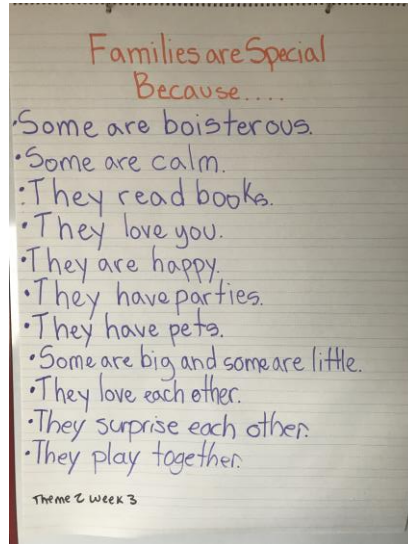 Families are Special
Because....
•Some are boisterous.
•Some are calm.
•They read books.
•They love you.
•They are happy.
•They have parties.
•They have pets.
•Some are big and some are little.
•They love each other.
•They surprise each other.
•They play together.
Theme 2 week 3